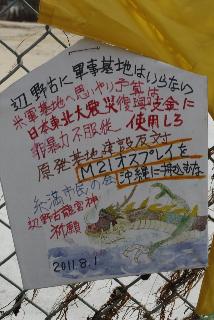 辺野古に軍事基地はいらない
米軍基地へ思いやり予算は
日本東北大震災復興支金に
非暴力不服従 使用しろ
原発基地建設反対
M21オスプレイを
沖縄に持ち込むな
糸満市民の会
辺野古龍宮神
祈願
2011.8.1